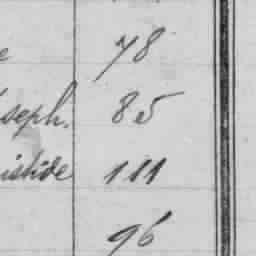 e 78
seph. 85
istide 111
96